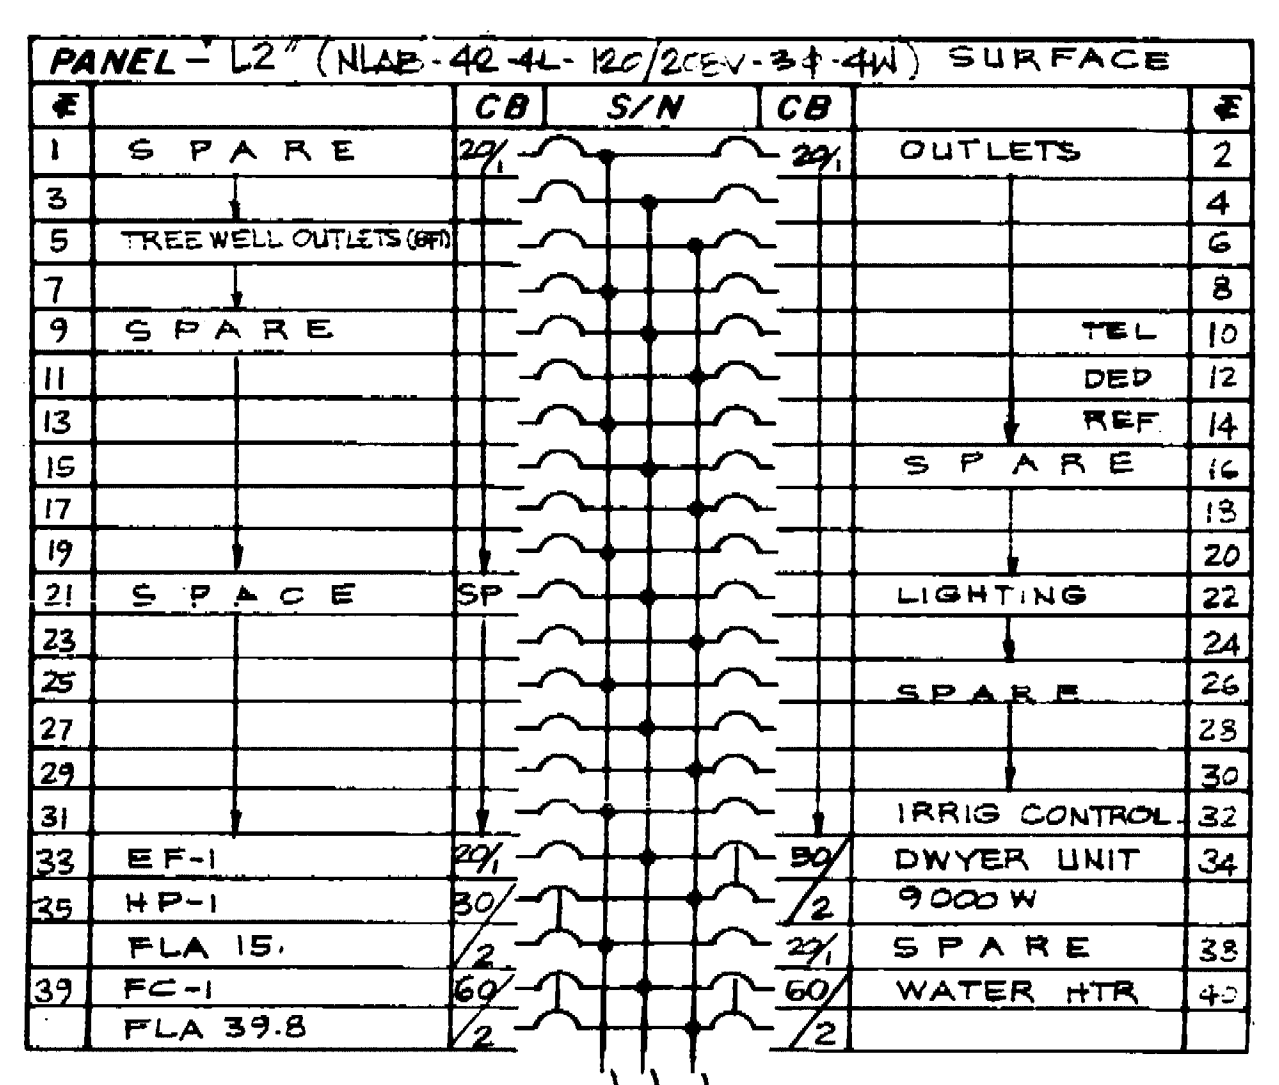 PANEL - "L2" (NLAB-42-4L-120/208V-3ϕ-4W) SURFACE
₵ CB S/N CB ₵
1 SPARE 20/1 20/1 OUTLETS 2
3 4
5 TREE WELL OUTLETS (GFI) 6
7 8
9 SPARE TEL 10
11 DED 12
13 REF. 14
15 SPARE 16
17 18
19 20
21 SPACE SP LIGHTING 22
23 24
25 SPARE 26
27 28
29 30
31 IRRIG CONTROL. 32
33 EF-1 20/1 50/2 DWYER UNIT 34
35 HP-1 30/2 9000 W
FLA 15. 20/1 SPARE 38
39 FC-1 60/2 60/2 WATER HTR 40
FLA 39.8